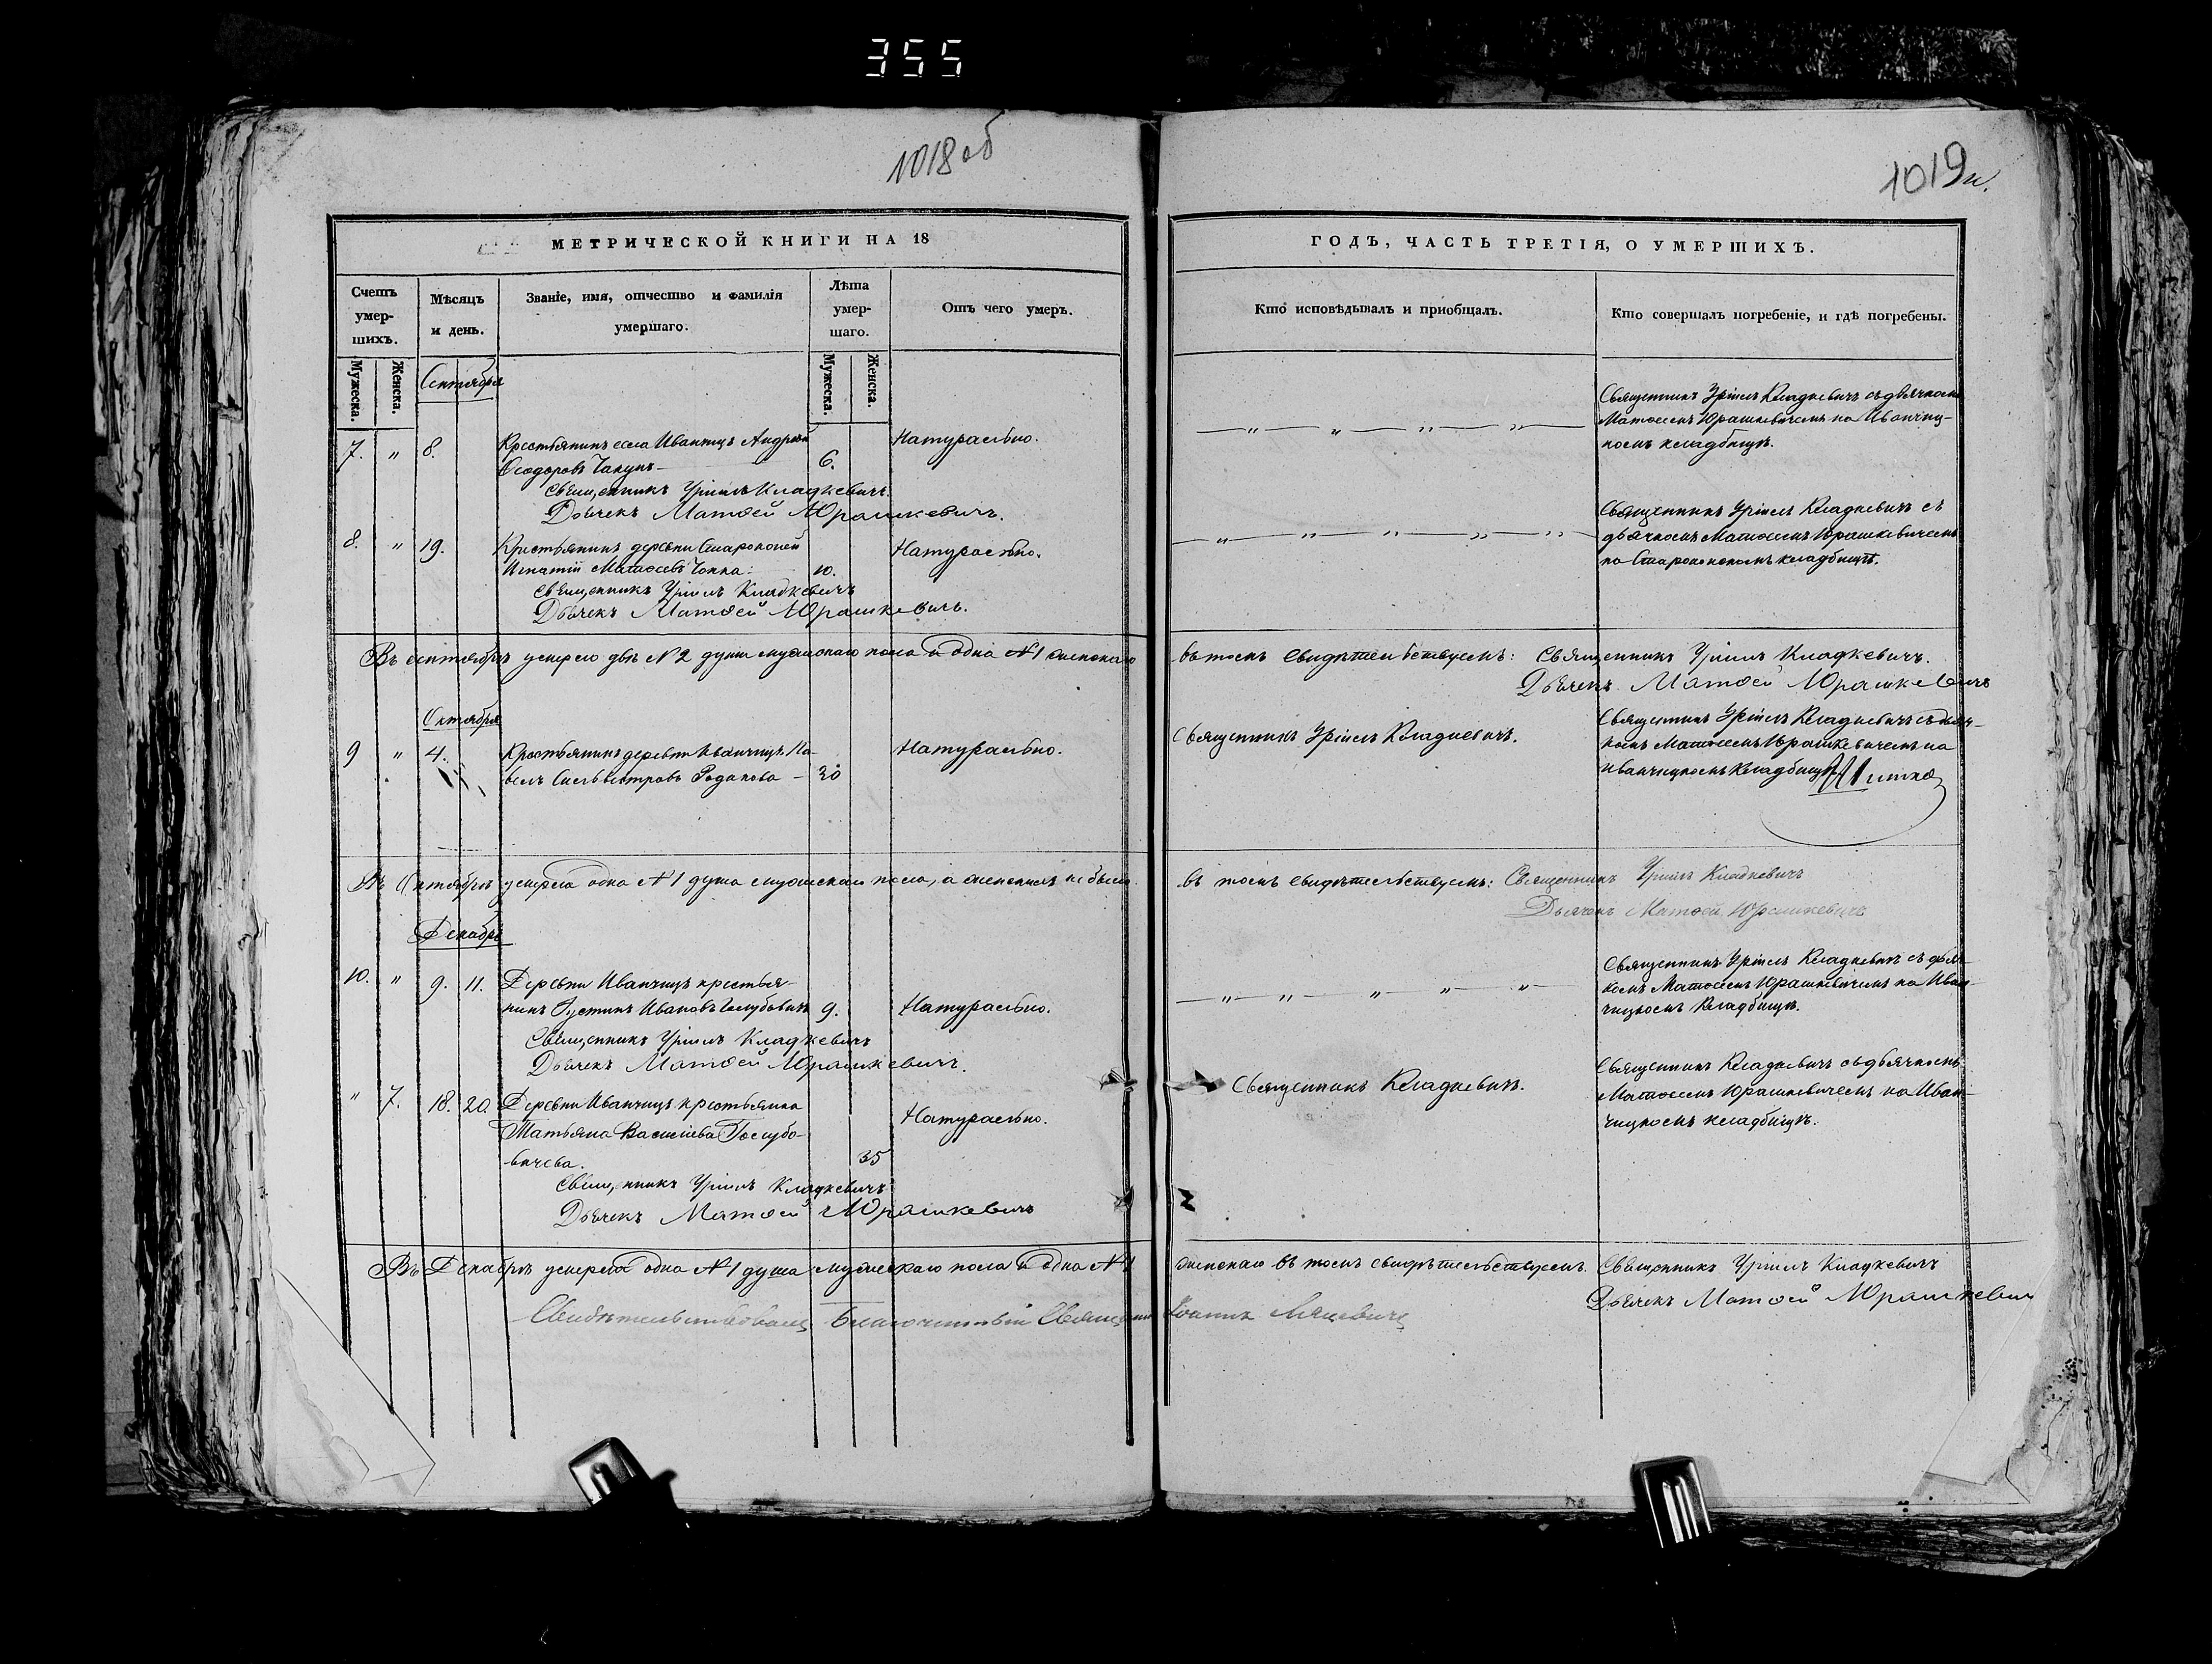 355
1018 об
МЕТРИЧЕСКОЙ КНИГИ НА 18
Счетъ умершихъ.
Мѣсяцъ и день.
Званіе, имя, отчество и фамилія умершаго.
Лѣта умершаго.
Отъ чего умеръ.
Мужеска.
Женска.
Мужеска.
Женска.
Сентября
7. " 8.
Крестьянинъ села Иванчицъ Андрей
Ѳеодоровъ
6.
Натурально.
Священникъ Уріилъ Кладкевичъ.
Дьячекъ Матѳей Юрашкевичъ.
8. " 19.
Крестьянинъ деревни
Игнатій Матѳеевъ
10.
Натурально.
Священникъ Уріилъ Кладкевичъ
Дьячекъ Матѳей Юрашкевичъ.
Въ сентябрѣ умерло двѣ №2 души мужескаго пола и одна №1 женскаго
Октября
9 " 4.
Крестьянинъ деревни Иванчицъ Па-
велъ Сильвестровъ
30
Натурально.
Въ Октябрѣ умерла одна №1 душа мужескаго пола, а женскихъ не было.
Декабрь
10. " 9. 11.
Деревни Иванчицъ крестья-
нинъ Іустинъ Ивановъ Голубовичъ
9.
Натурально.
Священникъ Уріилъ Кладкевичъ
Дьячекъ Матѳей Юрашкевичъ.
" 7. 18. 20.
Деревни Иванчицъ крестьянка
Татьяна Васильева Голубо-
вичева.
35
Натурально.
Священникъ Уріилъ Кладкевичъ
Дьячекъ Матѳей Юрашкевичъ
Въ Декабрѣ умерла одна №1 душа мужескаго пола и одна №1
Свидѣтельствовалъ Благочинный Священникъ
1019
ГОДЪ, ЧАСТЬ ТРЕТІЯ, О УМЕРШИХЪ.
Кто исповѣдывалъ и приобщалъ.
Кто совершалъ погребеніе, и гдѣ погребены.
Священникъ Уріилъ Кладкевичъ съ дьячкомъ
Матѳеемъ Юрашкевичемъ на Иванчиц-
комъ кладбищѣ.
Священникъ Уріилъ Кладкевичъ съ
дьячкомъ Матѳеемъ Юрашкевичемъ
на кладбищѣ.
въ томъ свидѣтельствуемъ: Священникъ Уріилъ Кладкевичъ.
Дьячекъ Матѳей Юрашкевичъ
Священникъ Уріилъ Кладкевичъ.
Священникъ Уріилъ Кладкевичъ съ дьяч-
комъ Матѳеемъ Юрашкевичемъ на
Иванчицкомъ кладбищѣ
въ томъ свидѣтельствуемъ: Священникъ Уріилъ Кладкевичъ
Дьячекъ Матѳей Юрашкевичъ
Священникъ Уріилъ Кладкевичъ съ дьяч-
комъ Матѳеемъ Юрашкевичемъ на Иван-
чицкомъ кладбищѣ.
Священникъ Кладкевичъ.
Священникъ Кладкевичъ съ дьячкомъ
Матѳеемъ Юрашкевичемъ на Иван-
чицкомъ кладбищѣ.
женскаго въ томъ свидѣтельствуемъ. Священникъ Уріилъ Кладкевичъ
Дьячекъ Матѳей Юрашкевичъ
Іоаннъ